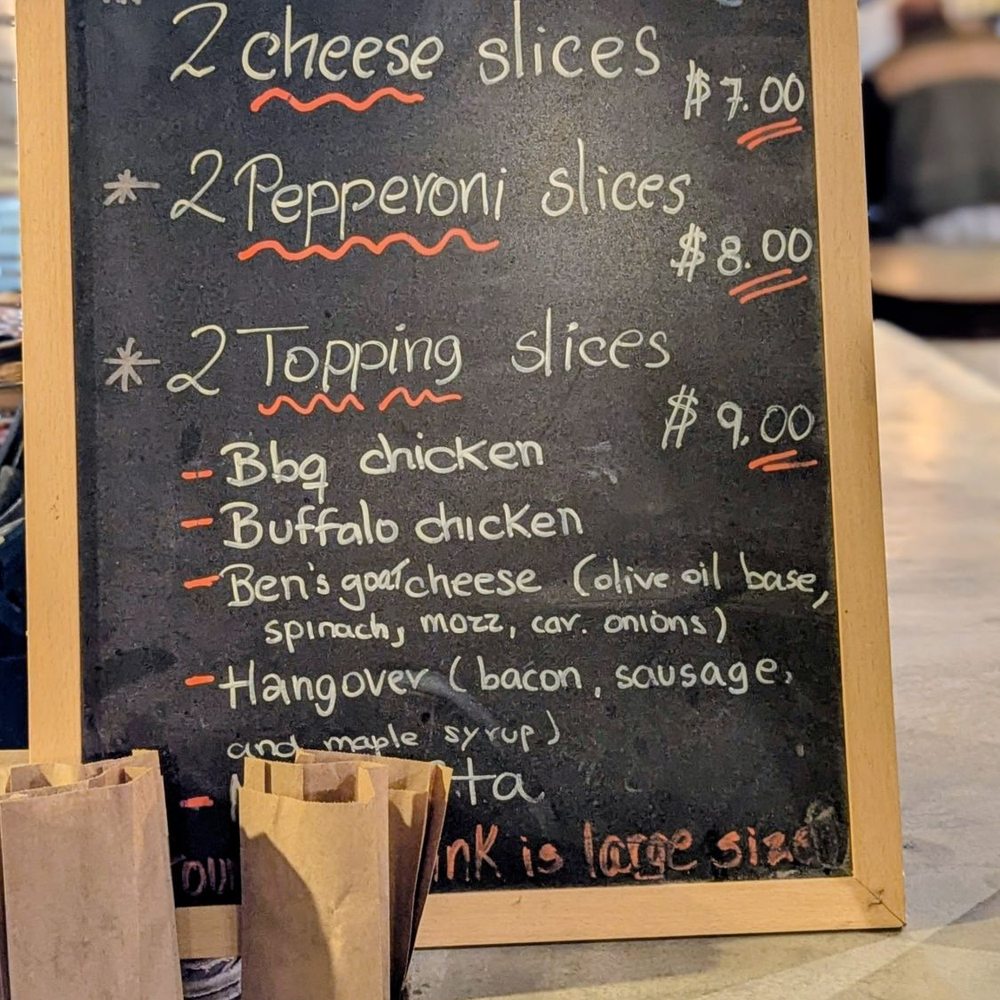 2 cheese slices
$7.00
* 2 Pepperoni slices
$8.00
* 2 Topping slices
$9.00
- Bbq chicken
- Buffalo chicken
- Ben's goat cheese (olive oil base,
spinach, mozz, car. onions)
- Hangover (bacon, sausage,
and maple syrup)
-
is large size